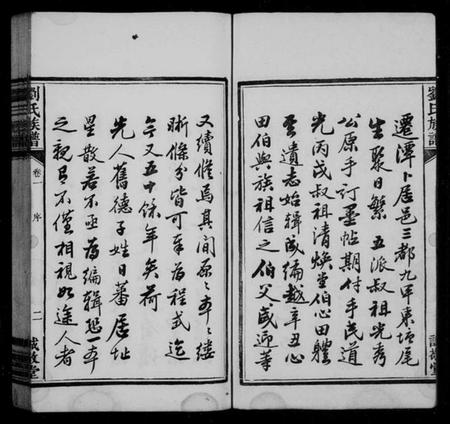 劉氏族譜
遷潭卜居邑三都九甲東塘尾
生聚日繁五派叔祖光秀
公原手訂墨帖期付手民道
光丙戌叔祖清煥堂伯心田體
至遺志始輯成編越辛丑心
田伯與族祖信之伯父盛卿等
又續修焉其間原原本本縷
晰條分皆可奉為程式迄
今又五十餘年矣荷
先人舊德子姓日蕃居址
星散若不亟為編輯恐一本
之親有不僅相視如途人者
劉氏族譜
卷一
序
二
誠敬堂